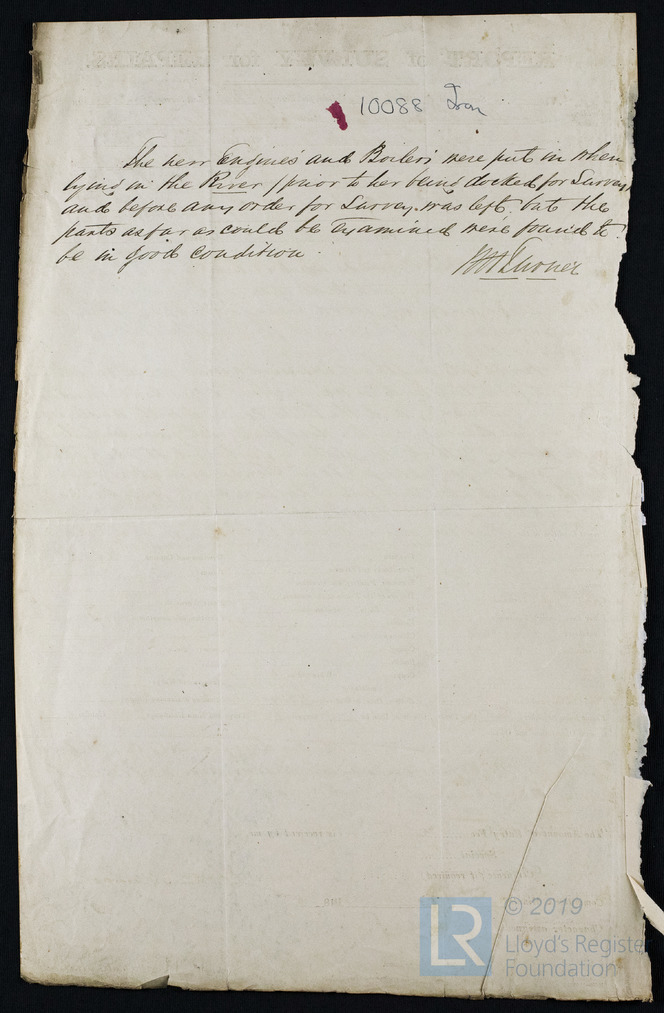 10088 Iron
The new Engines and Boilers were put in when
lying in the River / prior to her being docked for Survey
and before any order for Survey was left, but the
parts as far as could be Examined were found to
be in good condition.
Turner
© 2019
LR
Lloyd's Register
Foundation